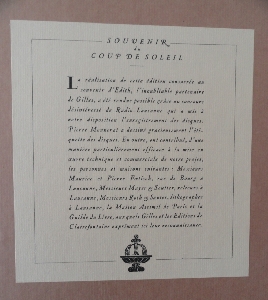 SOUVENIR
du
COUP DE SOLEIL
La réalisation de cette édition consacrée au
souvenir d'Edith, l'inoubliable partenaire
de Gilles, a été rendue possible grâce au concours
désintéressé de Radio-Lausanne qui a mis à
notre disposition l'enregistrement des disques.
Pierre Monnerat a dessiné gracieusement l'éti-
quette des disques. En outre, ont contribué, d'une
manière particulièrement efficace à la mise en
œuvre technique et commerciale de notre projet,
les personnes et maisons suivantes: Messieurs
Maurice et Pierre Fœtisch, rue de Bourg à
Lausanne, Messieurs Mayer & Soutter, relieurs à
Lausanne, Messieurs Roth & Sauter, lithographes
à Lausanne, la Maison Assimil de Paris et la
Guilde du Livre, auxquels Gilles et les Editions de
Clairefontaine expriment ici leur reconnaissance.